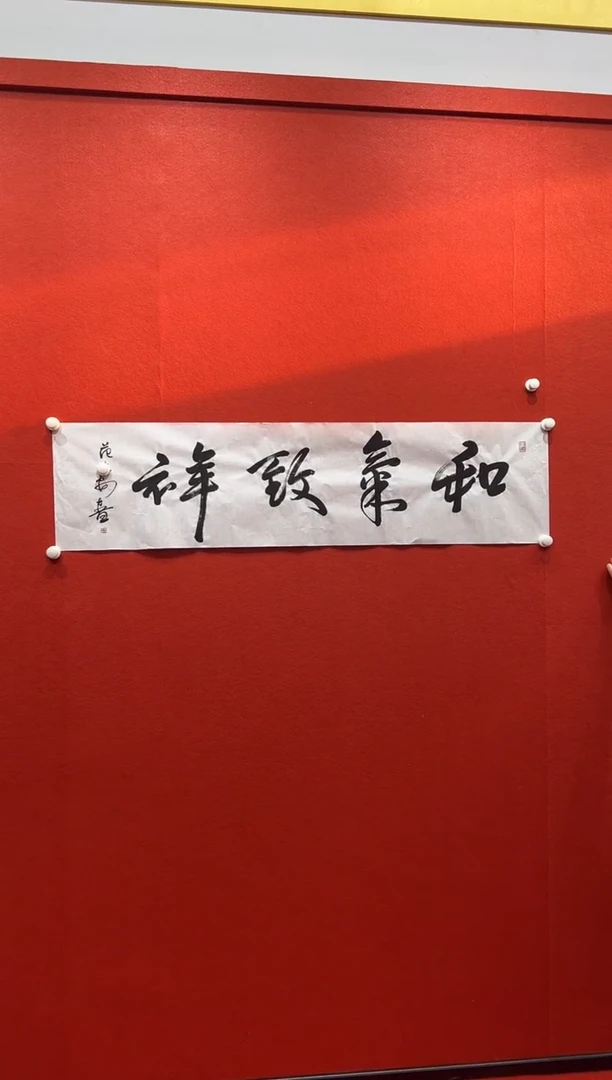 和氣致祥
范
書